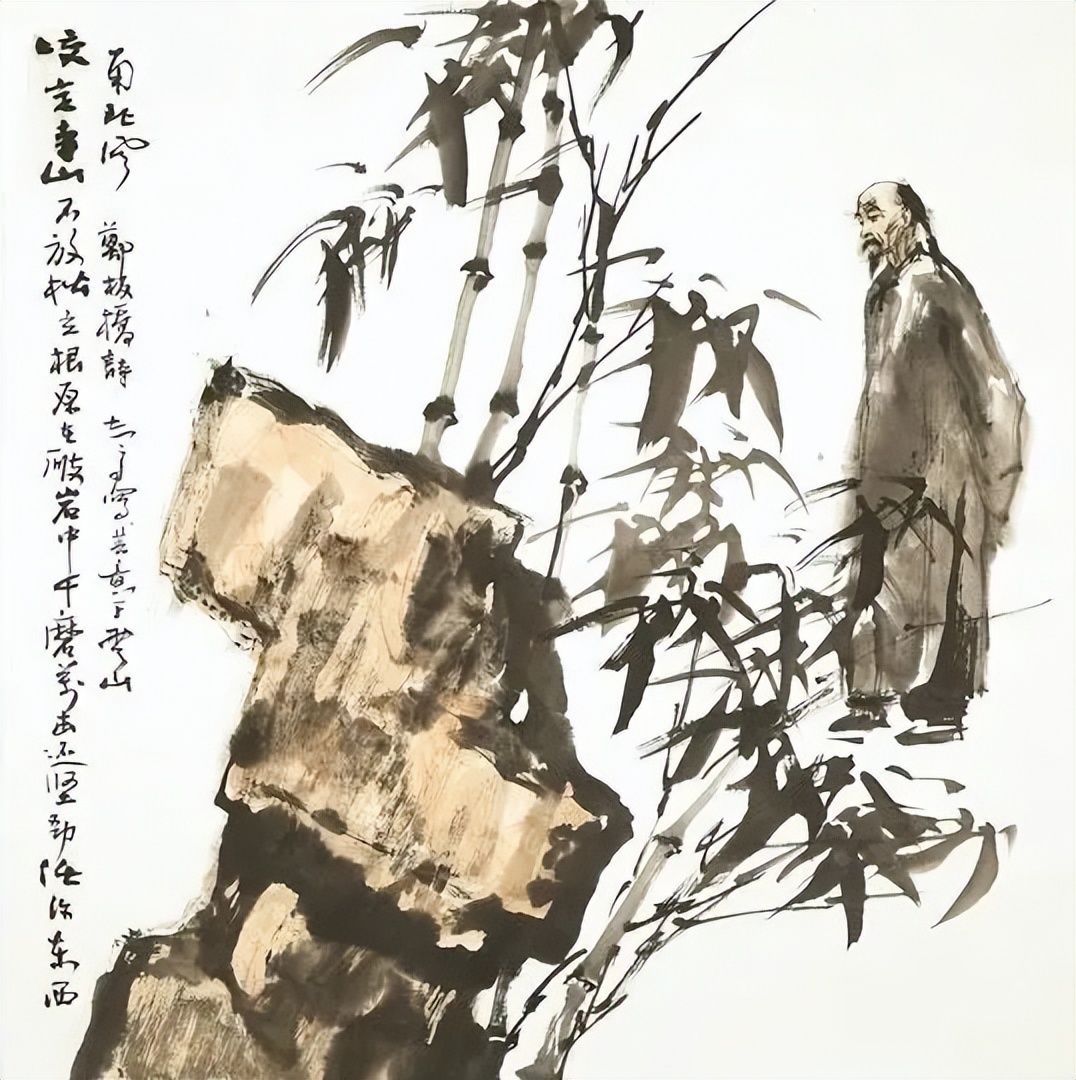 咬定青山不放松立根原在破岩中千磨萬击还坚劲任你东西
南北风 鄭板橋詩 寫其意于 山